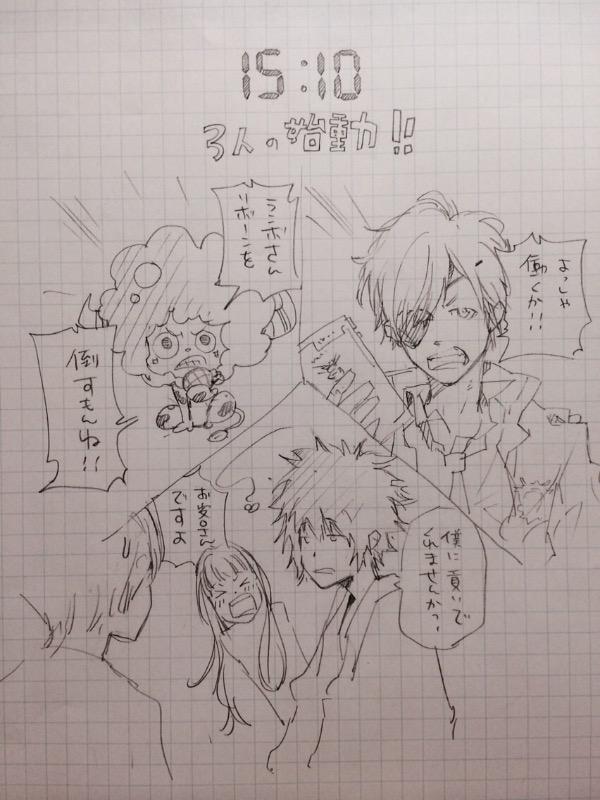 15:10
3人の始動力!!
よっしゃ
働くか!!
ランボさん
リボーンを
倒すもんね!!
僕に貢いで
くれませんか?
お客さん
ですよ